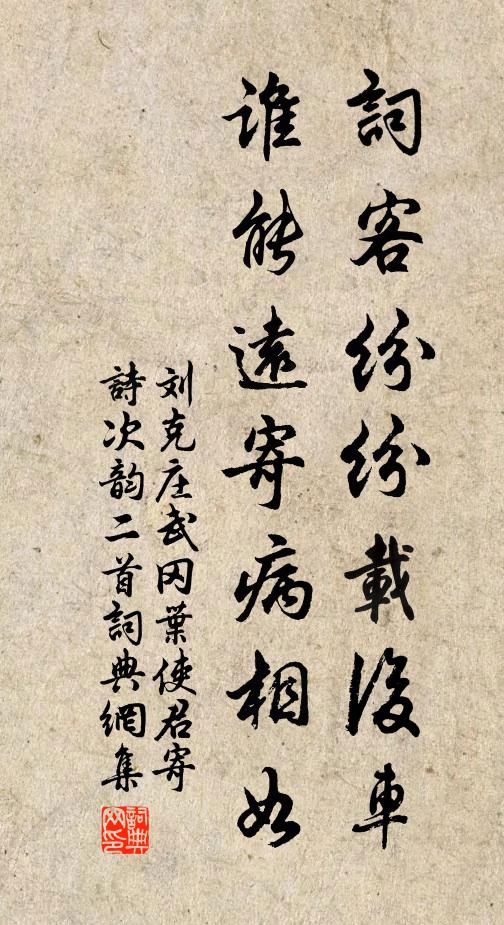 詞客紛紛載後車
誰能遠寄病相如
刘克庄武冈葉使君寄
詩次韵二首詞典網集
詞典网印